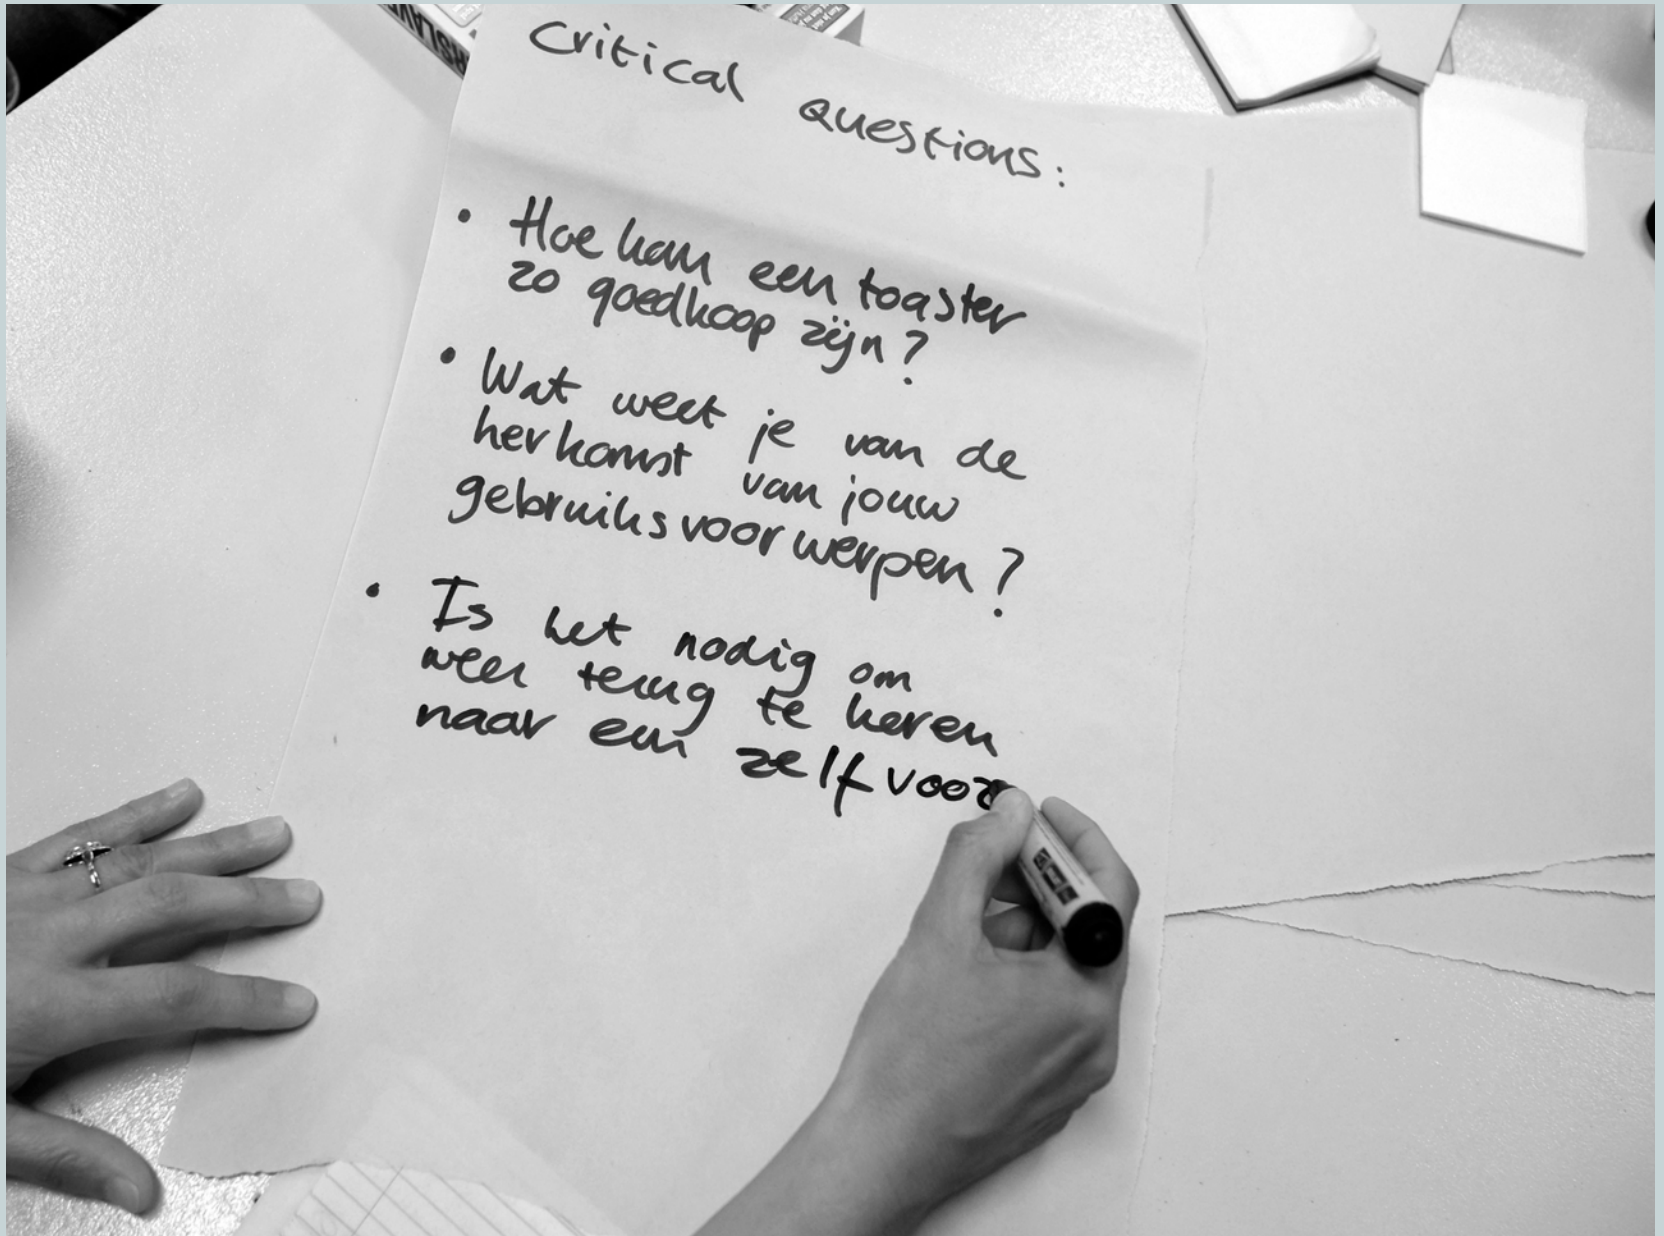 RSLAVE
Critical questions:
• Hoe kan een toaster
zo goedkoop zijn?
• Wat weet je van de
herkomst van jouw
gebruiksvoorwerpen?
• Is het nodig om
weer terug te keren
naar een zelfvoor